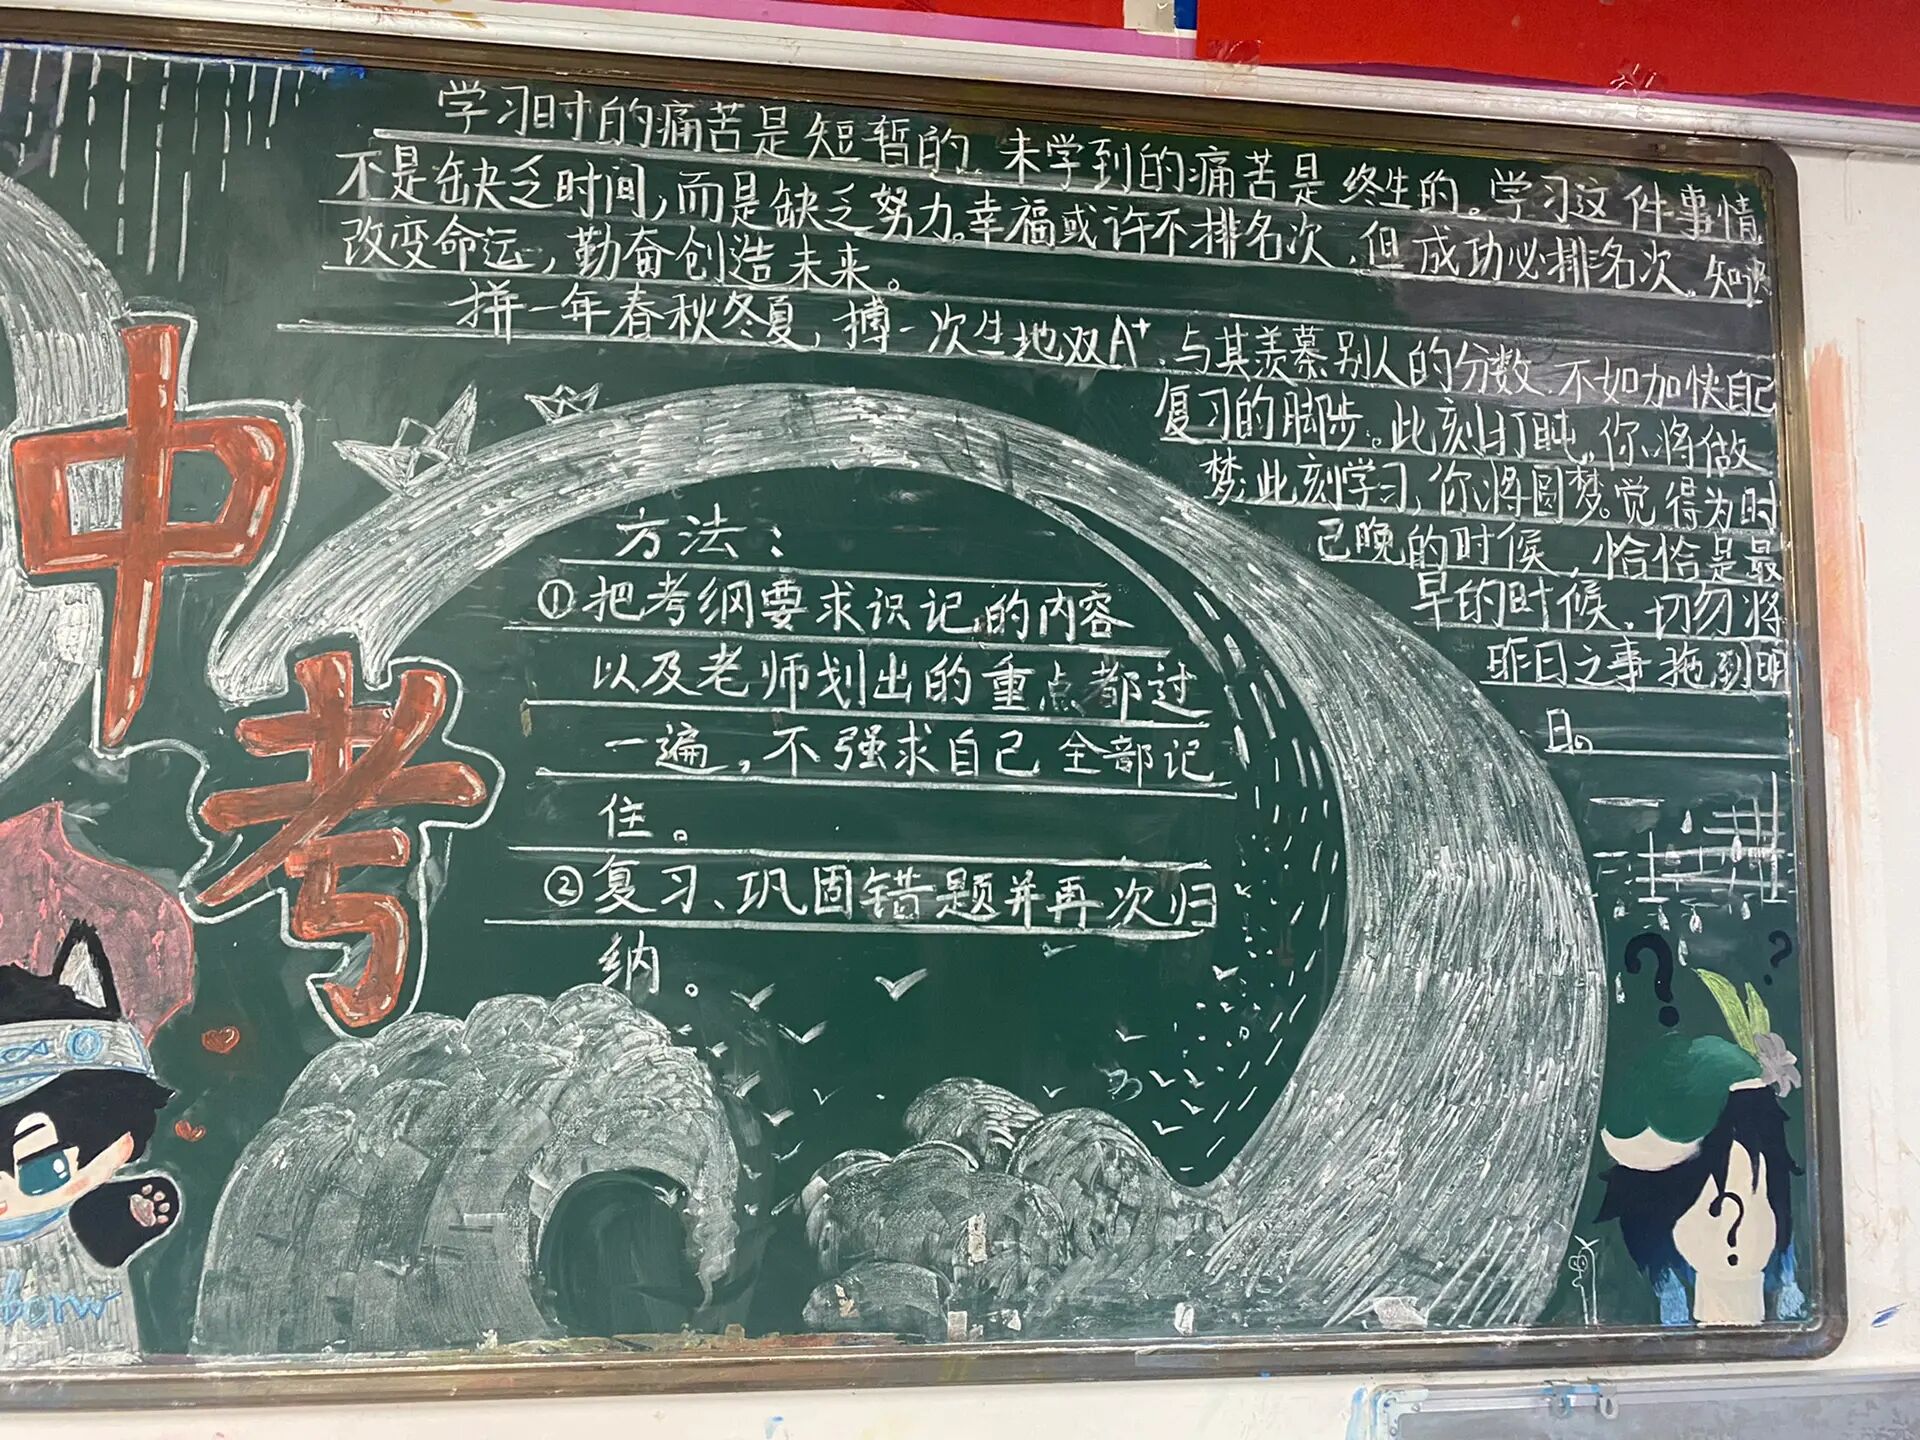 学习时的痛苦是短暂的、未学到的痛苦是终生的。学习这件事情
不是缺乏时间，而是缺乏努力。幸福或许不排名次，但成功必排名次。知识
改变命运，勤奋创造未来。
拼一年春秋冬夏，搏一次生地双A+、与其羡慕别人的分数、不如加快自己
复习的脚步。此刻打盹，你将做
梦；此刻学习，你将圆梦。觉得为时
已晚的时候，恰恰是最
早的时候。切勿将
昨日之事拖到明
日。
中考
方法：
①把考纲要求识记的内容
以及老师划出的重点都过
一遍，不强求自己全部记
住。
②复习、巩固错题并再次归
纳。
?
?
?